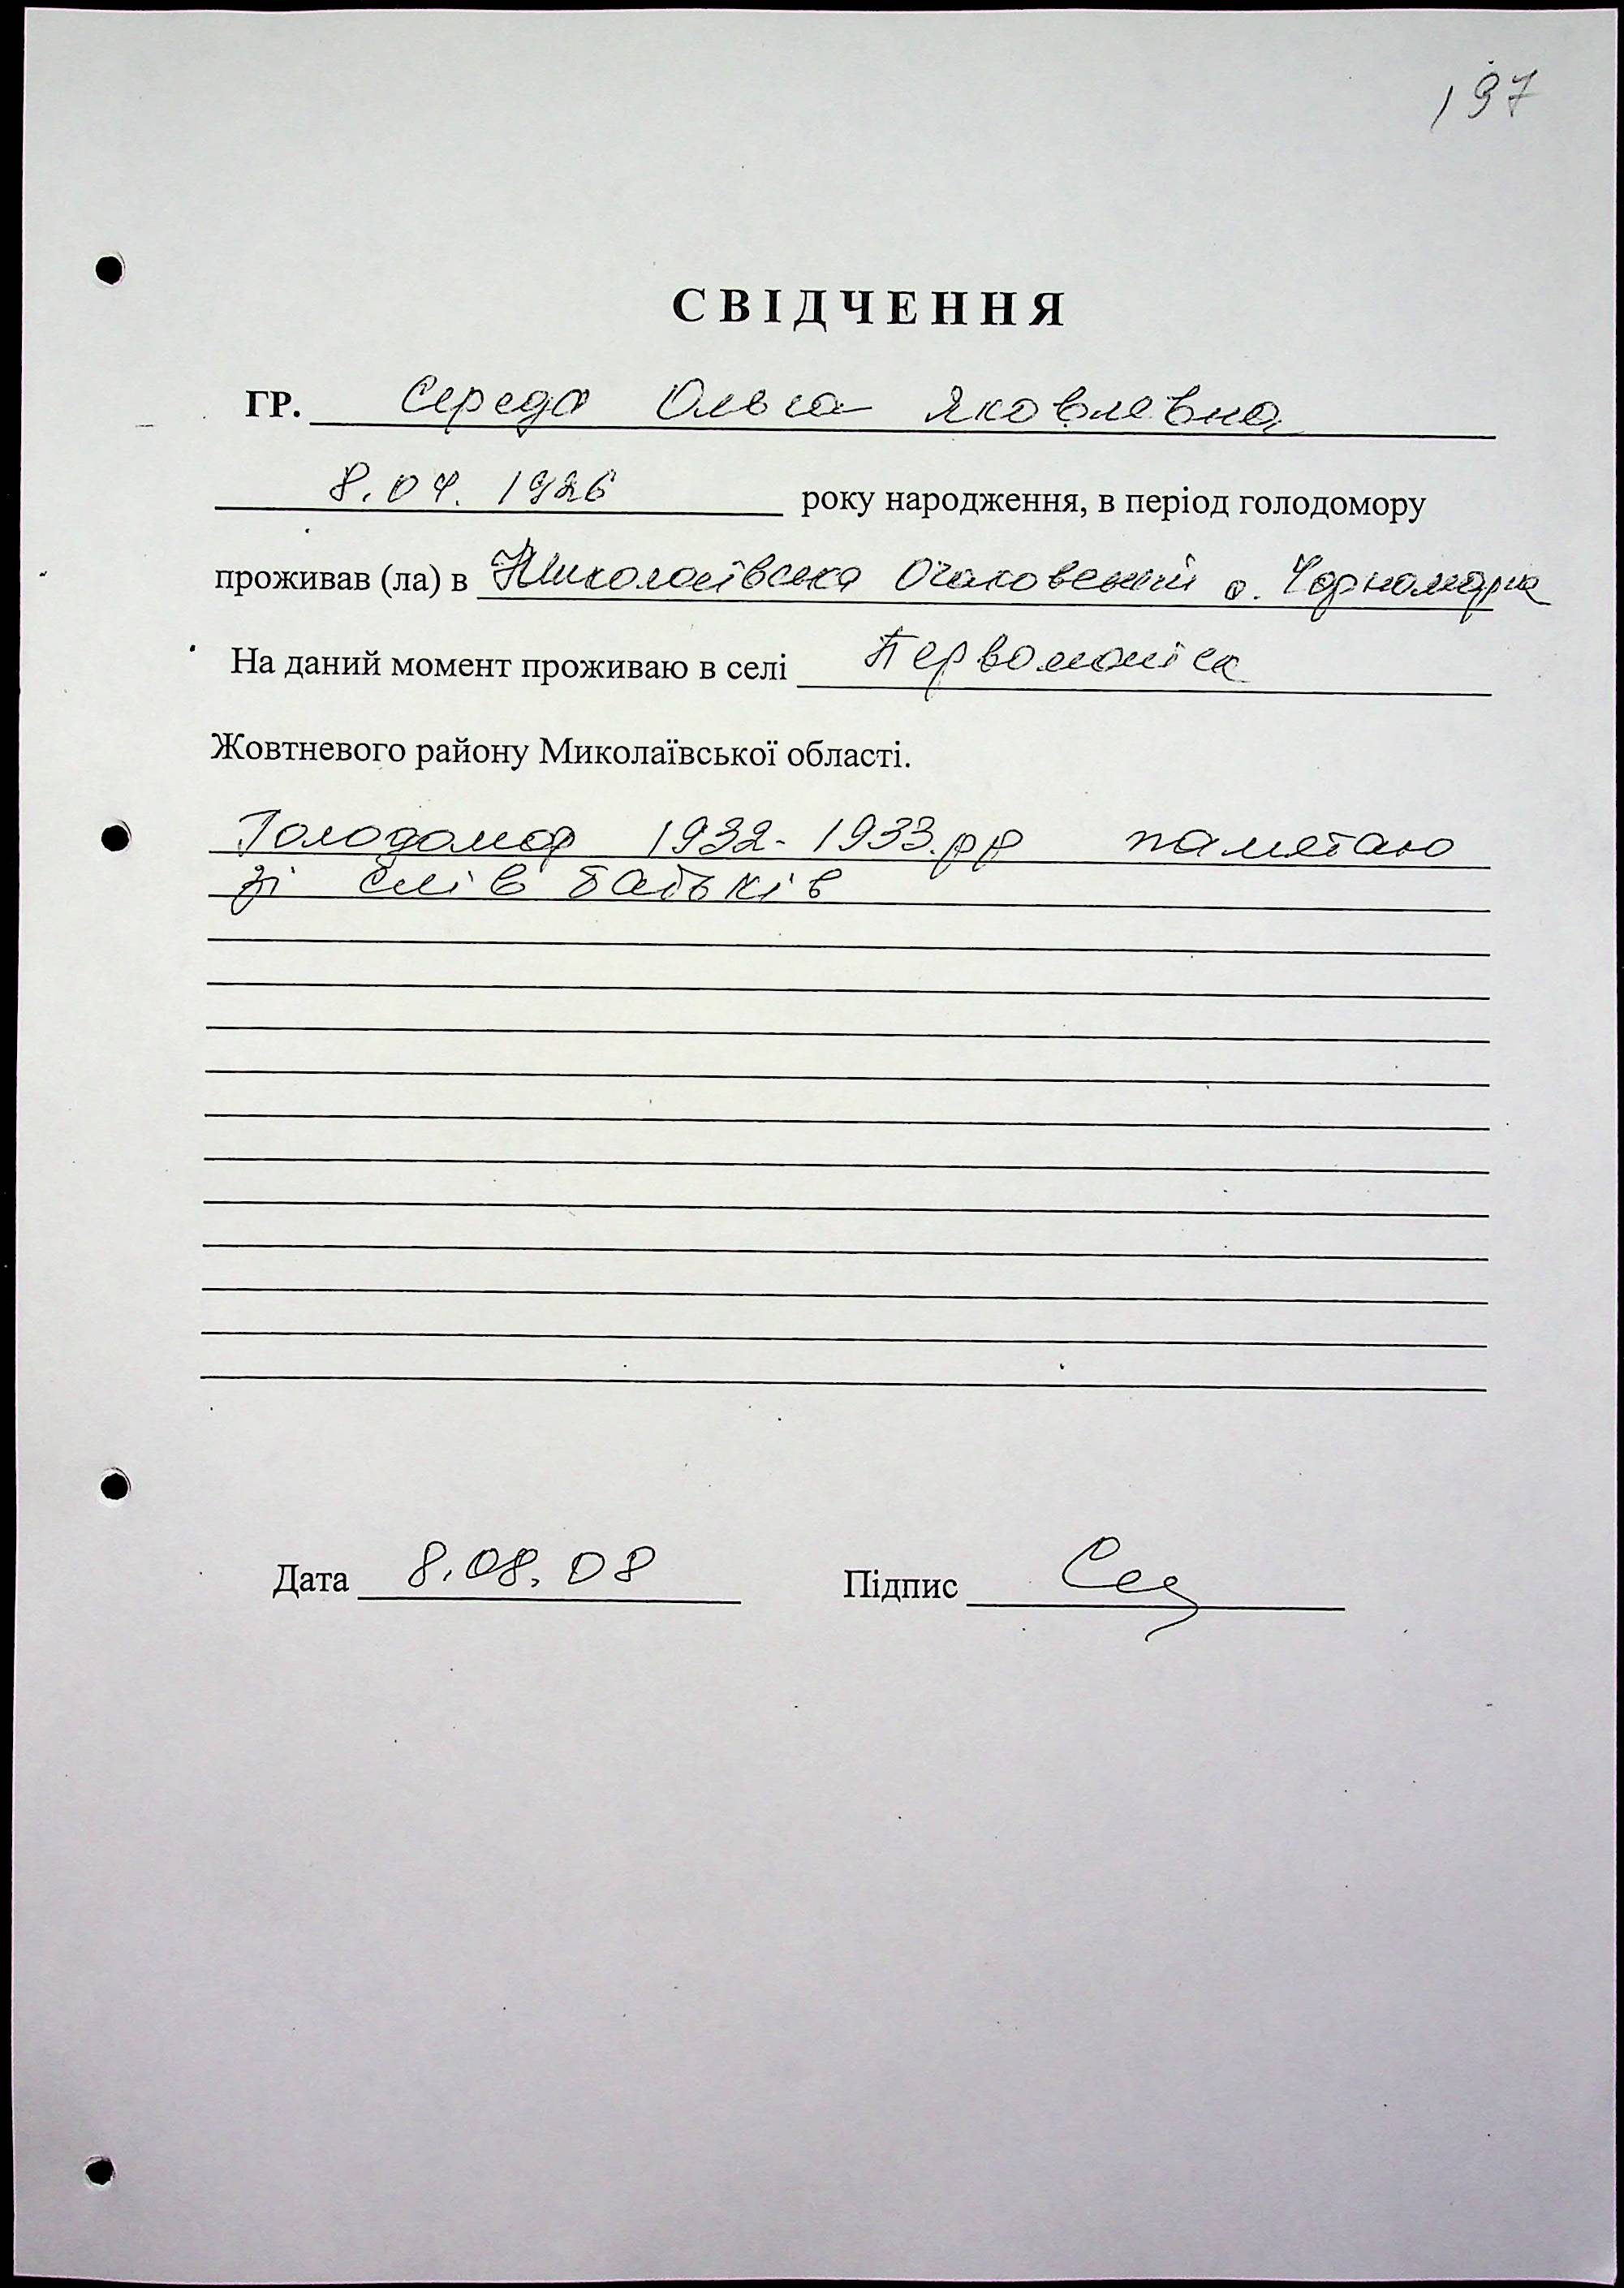 197
СВІДЧЕННЯ
ГР. Середа Ольга Яковлевна
8.04.1926 року народження, в період голодомору
проживав (ла) в Миколаївська Очаковский с. Чорноморка
На даний момент проживаю в селі Первомайск
Жовтневого району Миколаївської області.
Голодомор 1932-1933.рр памятаю
зі слів батьків
Дата 8.08.08 Підпис